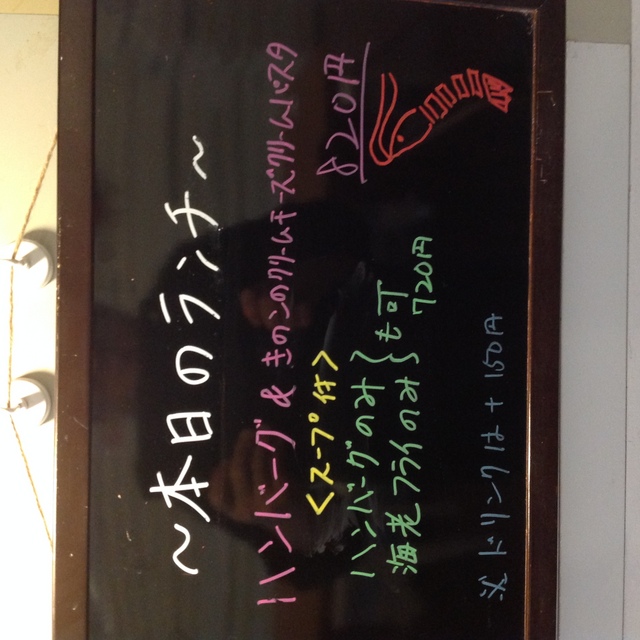 ～本日のランチ～
ハンバーグ & きのこのクリームチーズクリームパスタ
<スープ付>
820円
ハンバーグのみ
海老フライのみ
も可
720円
※ドリンクは+150円